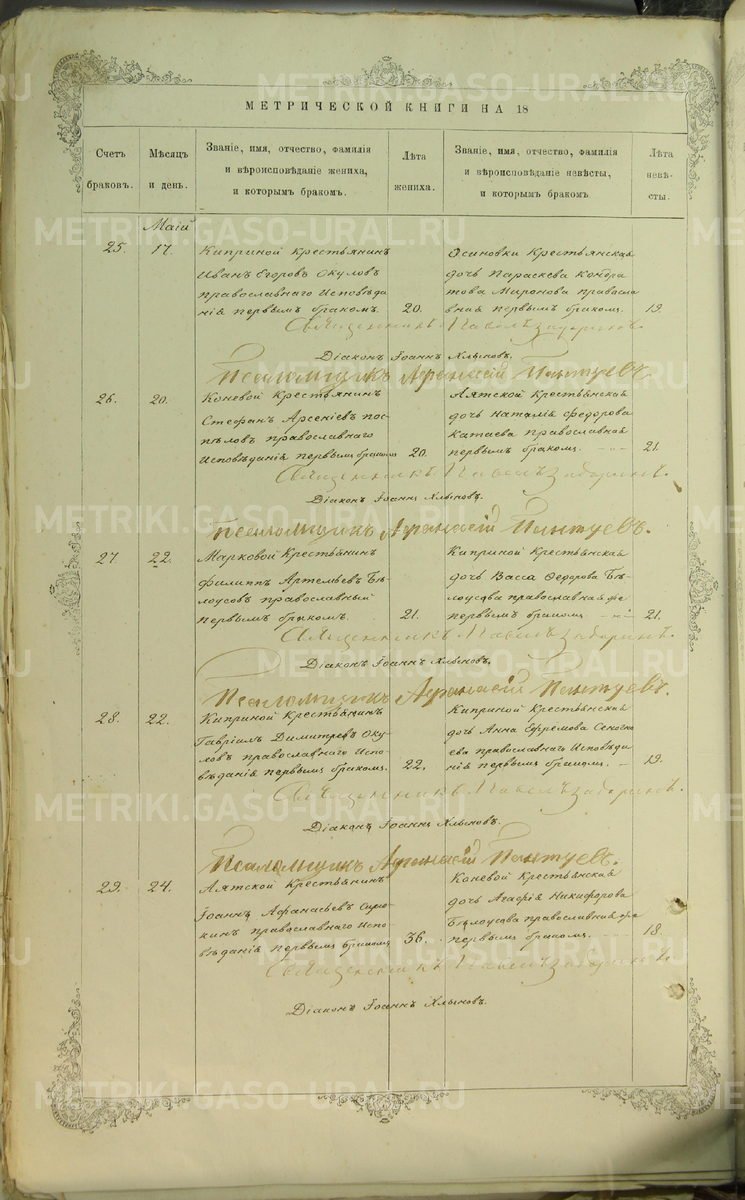 МЕТРИЧЕСКОЙ КНИГИ НА 18
Счетъ браковъ.
Мѣсяцъ и день.
Званіе, имя, отчество, фамилія
и вѣроисповѣданіе жениха,
и которымъ бракомъ.
Лѣта жениха.
Званіе, имя, отчество, фамилія
и вѣроисповѣданіе невѣсты,
и которымъ бракомъ.
Лѣта невѣсты.
Маій
25. 17.
Киприной Крестьянинъ
Иванъ Егоровъ Окуловъ
православнаго Исповѣда
нія первымъ бракомъ. 20.
Осиновки Крестьянская
дочь Параскева Кондра
това Миронова правосла
вная первымъ бракомъ. 19.
Священникъ Павелъ
Діаконъ Іоаннъ Хлыновъ.
Псаломщикъ Афанасій Пантуевъ.
26. 20.
Коневой Крестьянинъ
Стефанъ Арсеніевъ Пос
пѣловъ православнаго
Исповѣданія первымъ бракомъ 20.
Аятской Крестьянская
дочь Наталья Федорова
Катаева православная
первымъ бракомъ. 21.
Священникъ Павелъ
Діаконъ Іоаннъ Хлыновъ.
Псаломщикъ Афанасій Пантуевъ.
27. 22.
Марковой Крестьянинъ
Филиппъ Артемьевъ Бѣ
лоусовъ православный
первымъ бракомъ. 21.
Киприной Крестьянская
дочь Васса Федорова Бѣ
лоусова православная
первымъ бракомъ 21.
Священникъ Павелъ
Діаконъ Іоаннъ Хлыновъ.
Псаломщикъ Афанасій Пантуевъ.
28. 22.
Киприной Крестьянинъ
Гавріилъ Димитріевъ Оку
ловъ православнаго Испо
вѣданія первымъ бракомъ. 22.
Киприной Крестьянская
дочь Анна Ефремова
православнаго Исповѣда
нія первымъ бракомъ. 19.
Священникъ Павелъ
Діаконъ Іоаннъ Хлыновъ.
Псаломщикъ Афанасій Пантуевъ.
29. 24.
Аятской Крестьянинъ
Іоаннъ Афанасьевъ
православнаго Испо
вѣданія первымъ бракомъ 36.
Коневой Крестьянская
дочь Агафія Никифорова
Бѣлоусова православная
первымъ бракомъ. 18.
Священникъ Павелъ
Діаконъ Іоаннъ Хлыновъ.
METRIKI.GASO-URAL.RU